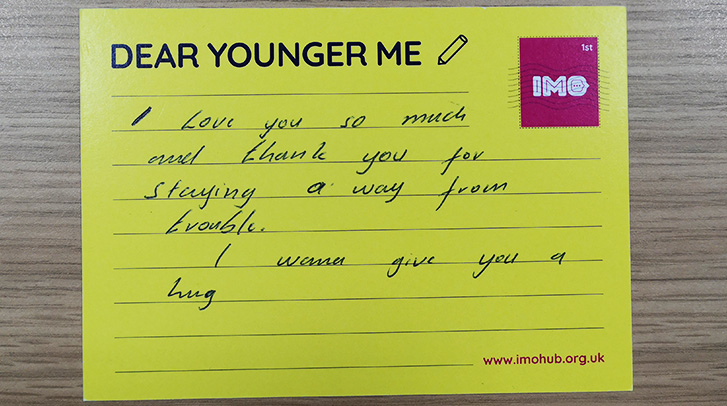 DEAR YOUNGER ME
1st
IMO
I Love you so much
and thank you for
staying a way from
trouble.
I wanna give you a
hug
www.imohub.org.uk